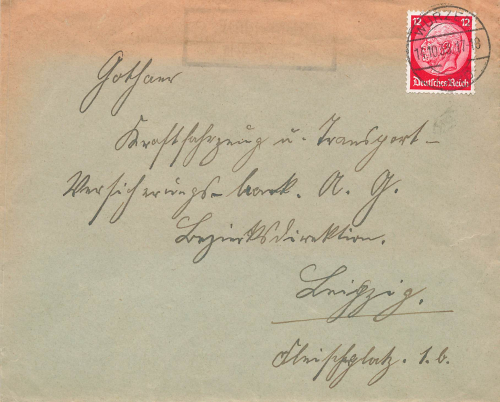 12 12
Deutsches Reich
Gothaer
Kraftfahrzeug u. Transport-
Versicherungs-bank. A. G.
Bezirksdirektion.
Leipzig.
Fleischplatz. 1.b.